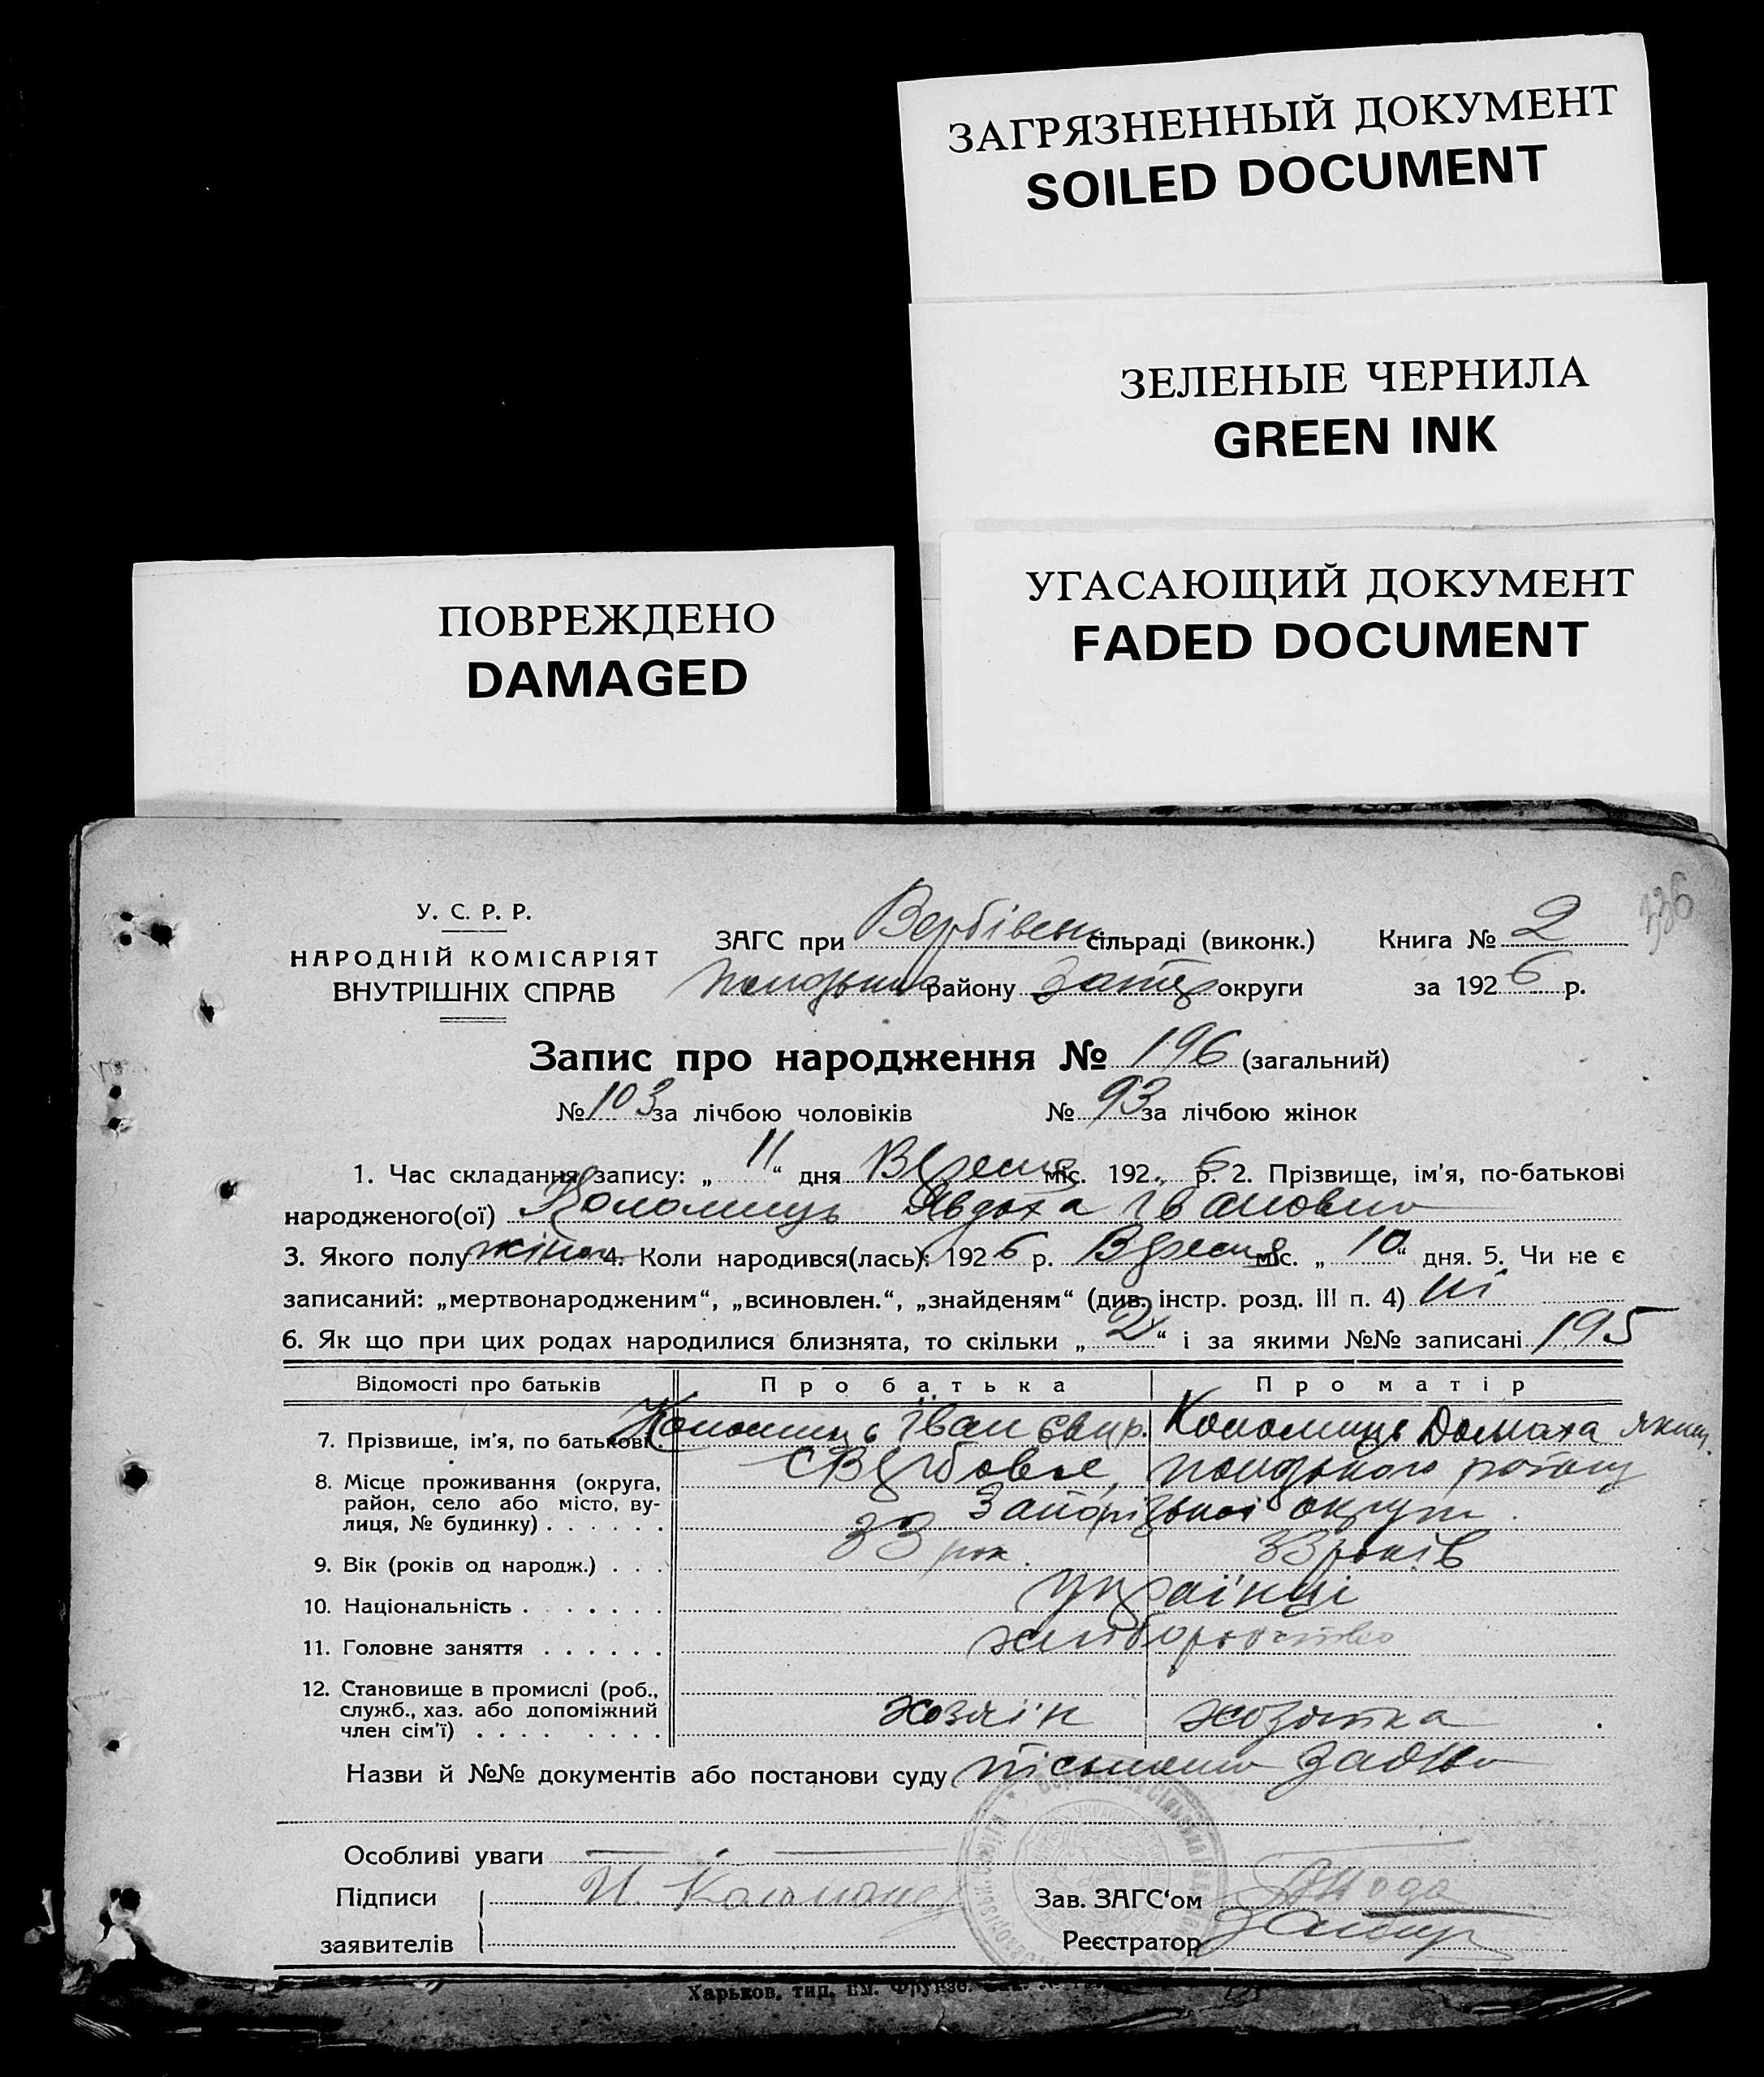 ЗАГРЯЗНЕННЫЙ ДОКУМЕНТ
SOILED DOCUMENT
ЗЕЛЕНЫЕ ЧЕРНИЛА
GREEN INK
УГАСАЮЩИЙ ДОКУМЕНТ
FADED DOCUMENT
ПОВРЕЖДЕНО
DAMAGED
336
У. С. Р. Р.
НАРОДНІЙ КОМІСАРІЯТ
ВНУТРІШНІХ СПРАВ
ЗАГС при Вербівськ сільраді (виконк.) Книга № 2
району округи за 1926 р.
Запис про народження № 196 (загальний)
№ 103 за лічбою чоловіків № 93 за лічбою жінок
1. Час складання запису: „ 11 “ дня Вересня міс. 192 6 р. 2. Прізвище, ім'я, по-батькові
народженого(ої) Коломиць Явдоха Івановна
3. Якого полу жіноч 4. Коли народився(лась): 1926 р. Вересня міс. „ 10 “ дня. 5. Чи не є
записаний: „мертвонародженим“, „всиновлен.“, „знайденям“ (див. інстр. розд. III п. 4) ні
6. Як що при цих родах народилися близнята, то скільки „ 2 “ і за якими №№ записані 195
Відомості про батьків Про батька Про матір
7. Прізвище, ім'я, по батькові. Коломиць Іван Свир. Коломиць Домаха Яким.
8. Місце проживання (округа, район, село або місто, вулиця, № будинку) . . . . . . с Вербове, пологського району
Запорізької округи.
9. Вік (років од народж.) . . . 33 рок. 33 років
10. Національність . . . . . . . українці
11. Головне заняття . . . . . . хліборобство
12. Становище в промислі (роб., служб., хаз. або допоміжний член сім'ї) . . . . . . . . хозяїн хозяйка
Назви й №№ документів або постанови суду письменна заява
Особливі уваги
Підписи И. Коломоец Зав. ЗАГС'ом
заявителів Реєстратор
Харьков, тип. им. Фрунзе.